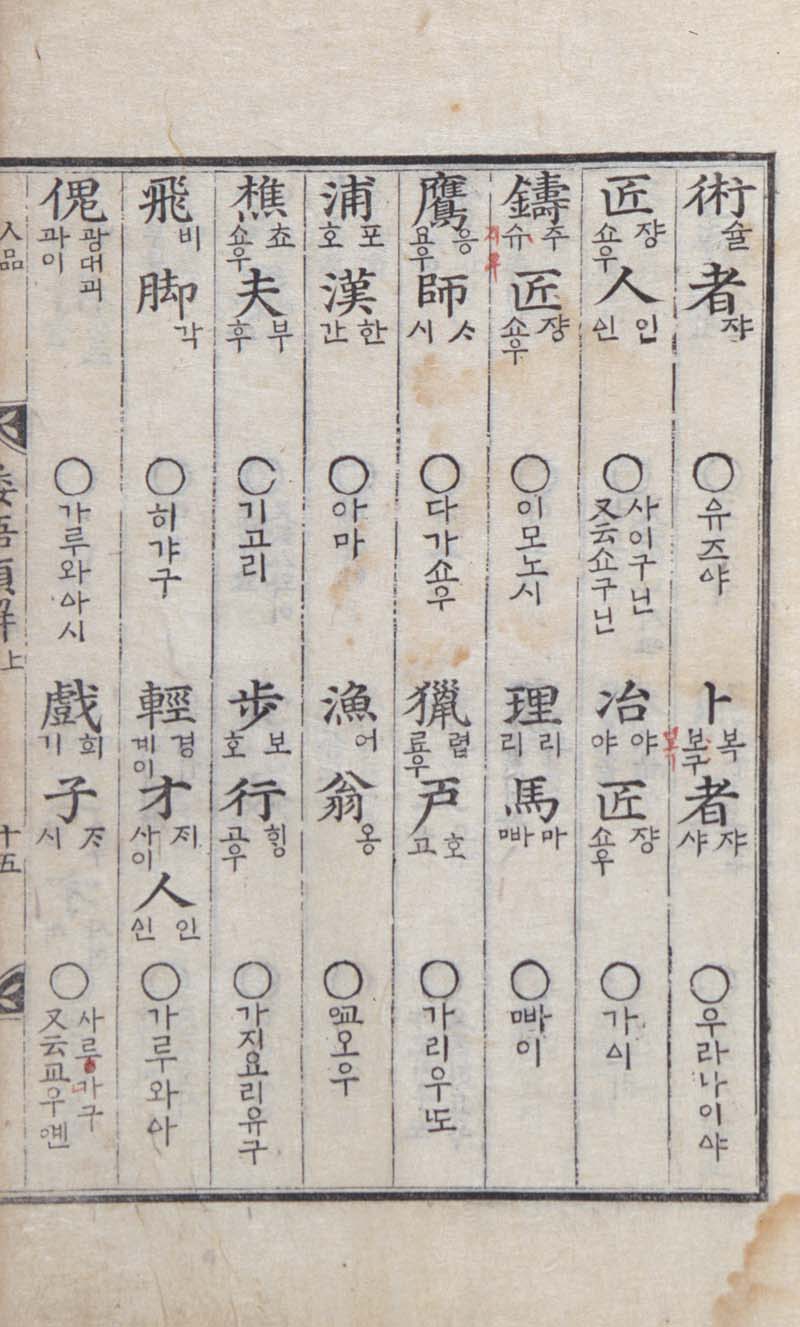 術 슐 者 쟈 ○ 유즈ᅀᅣ 卜 복 보구 者 쟈 샤 ○ 우라나이ᅀᅣ
匠 쟝 쇼우 人 인 신 ○ 사이구닌 又云쇼구닌 冶 야 야 匠 쟝 쇼우 ○ 가ᅀᅵ
鑄 주 슈 匠 쟝 쇼우 ○ 이모노시 理 리 리 馬 마 빠 ○ 빠이
鷹 응 요우 師 ᄉᆞ 시 ○ 다가쇼우 獵 렵 료우 戶 호 고 ○ 가리우ᄯᅩ
浦 포 호 漢 한 간 ○ 아마 漁 어 翁 옹 ○ 오우
樵 쵸 쇼우 夫 부 후 ○ 기고리 步 보 호 行 ᄒᆡᆼ 고우 ○ 가지요리유구
飛 비 脚 각 ○ 히갸구 輕 경 계이 才 ᄌᆡ 사이 人 인 신 ○ 가루와ᅀᅡ
傀 광대괴 과이 ○ 가루와ᅀᅡ시 戲 희 기 子 ᄌᆞ 시 ○ 사루가구 又云교우
人品 倭語類解 上 十五